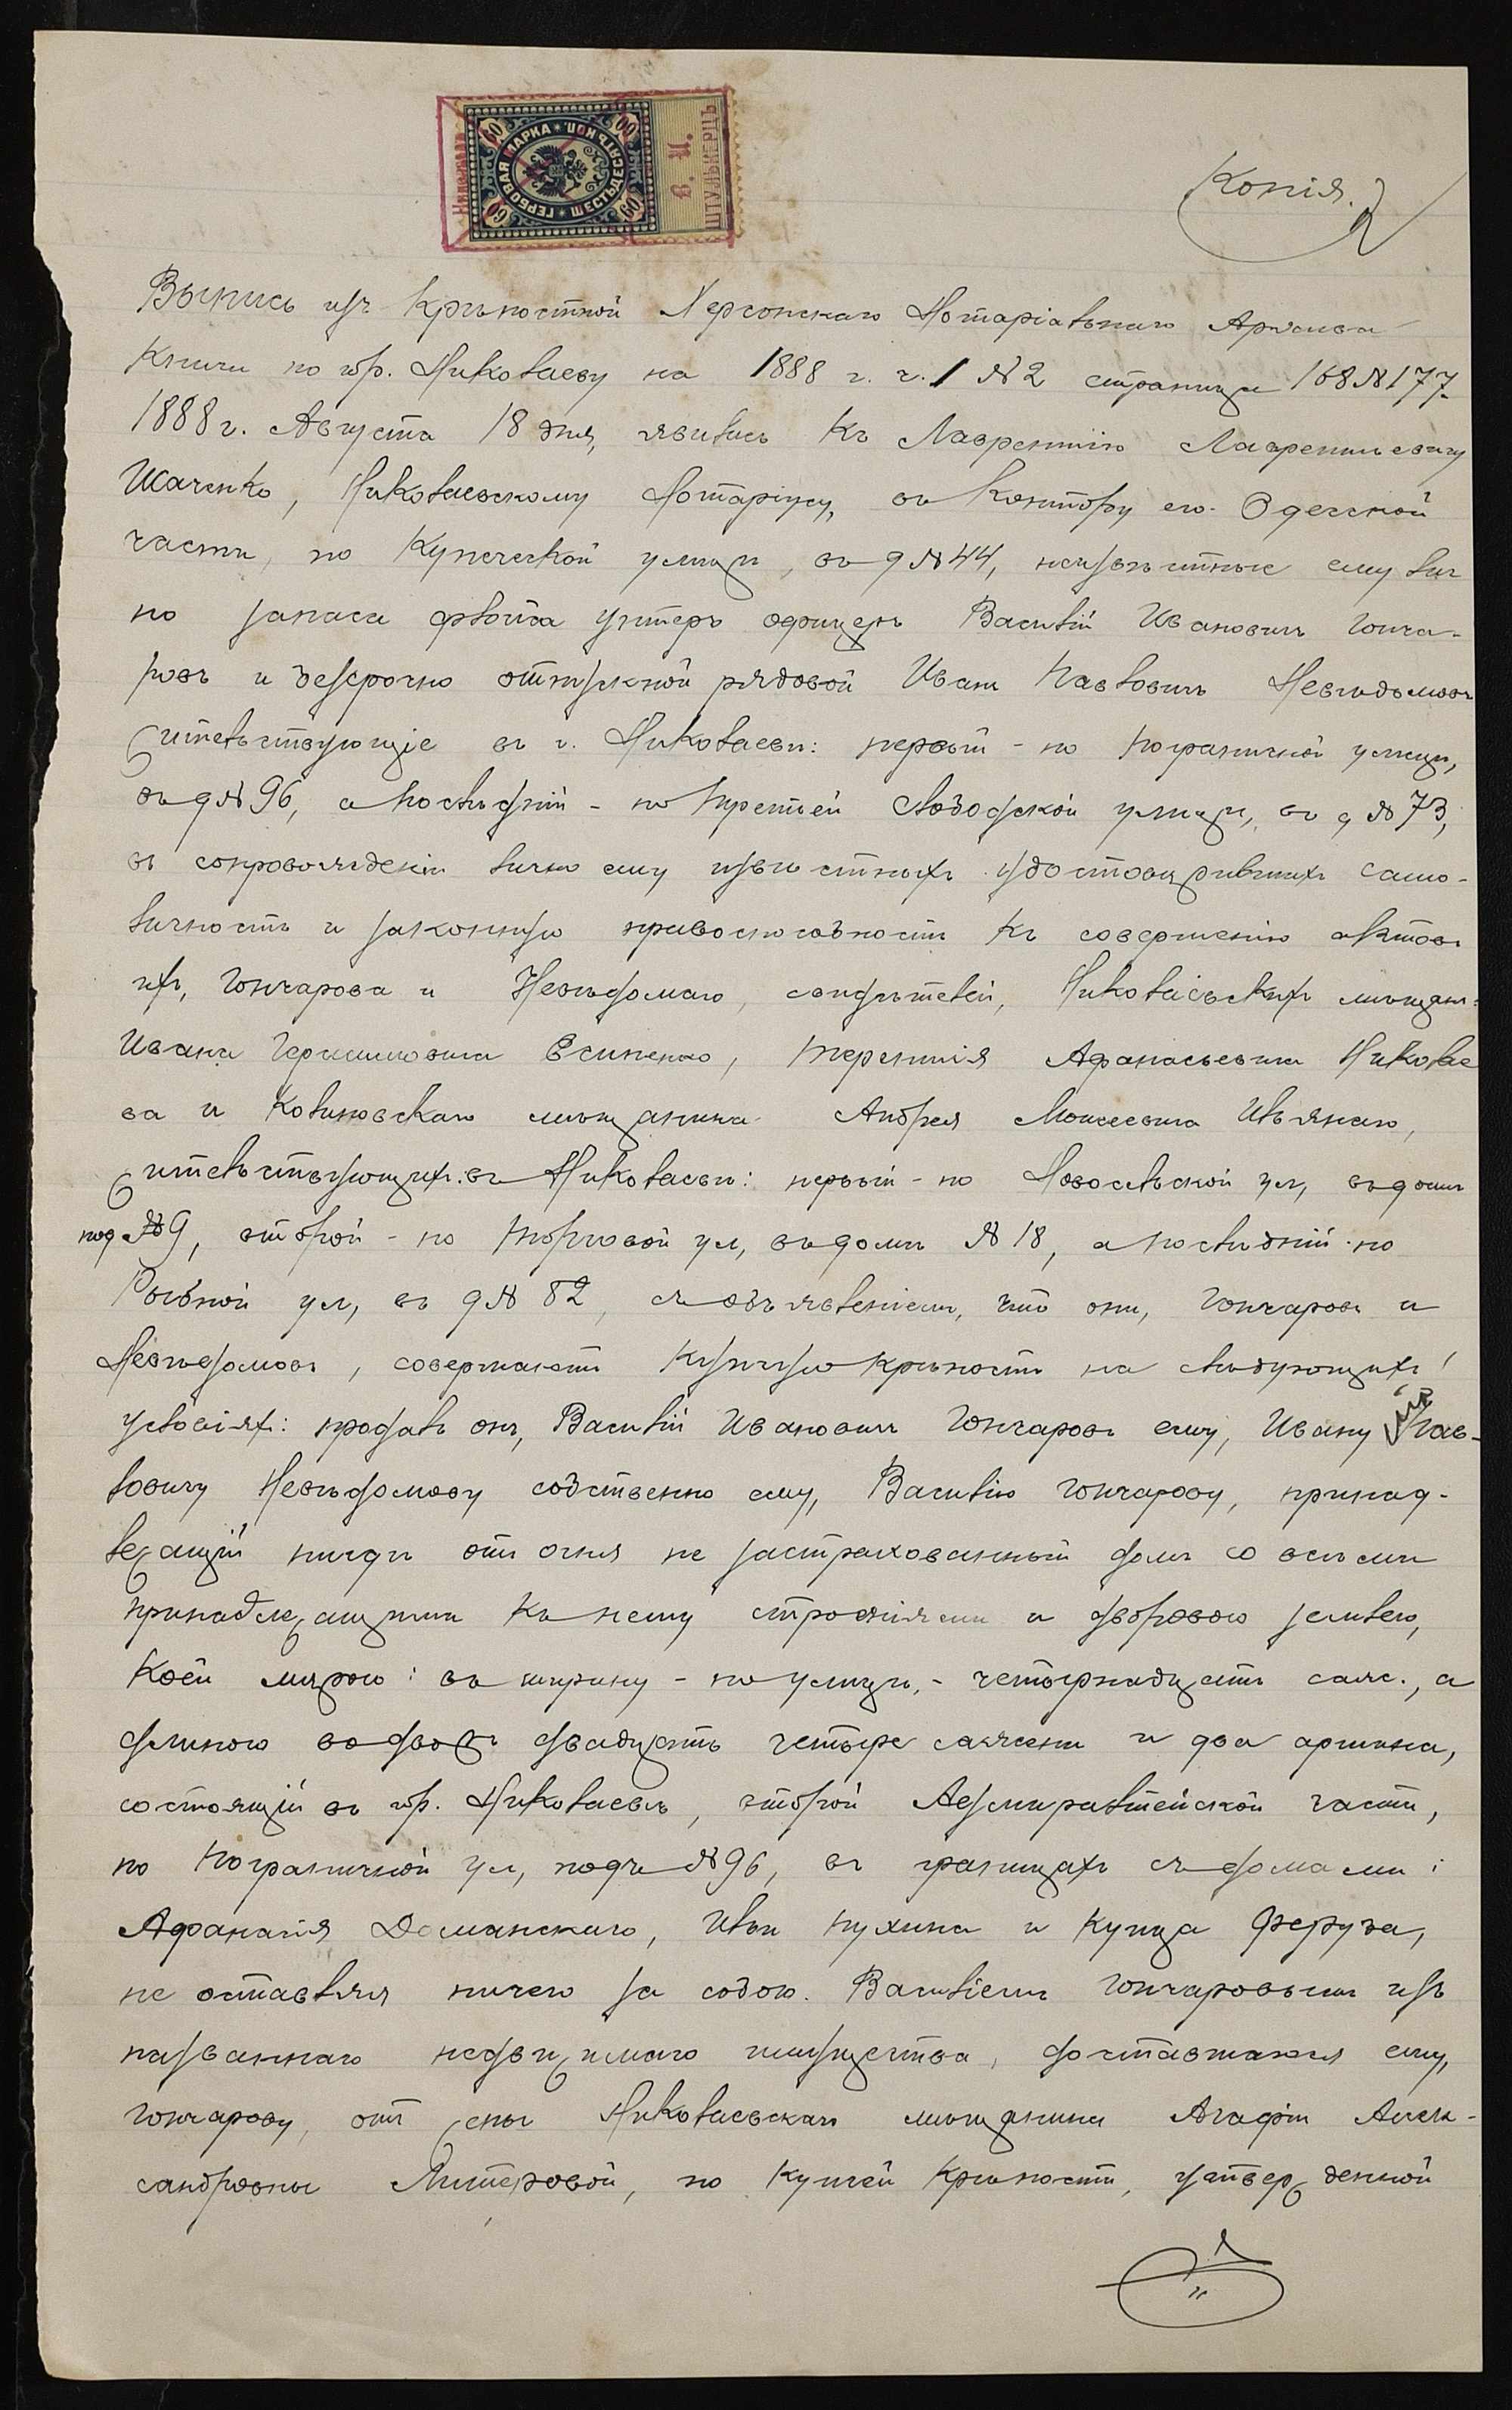 ГЕРБОВАЯ МАРКА ШЕСТЬДЕСЯТЪ КОП.
60 60 60 60
В. И.
ШТУЛЬКЕРЦЪ
Копія.
Выпись изъ Крѣпостной Херсонскаго Нотаріальнаго Архива
Книги по гор. Николаеву на 1888 г. ч. 1 № 2 страница 168 № 177.
1888 г. Августа 18 дня, явились къ Лаврентію Лаврентьевичу
Исаченко, Николаевскому Нотаріусу, въ Контору его Одесской
части, по Купеческой улицѣ, въ д № 44, неизвѣстные ему лич
но запаса флота унтеръ офицеръ Василій Ивановичъ Гонча-
ровъ и безсрочно отпускной рядовой Иванъ Павловичъ Невѣдомовъ
жительствующіе въ г. Николаевѣ: первый - по Пограничной улицѣ,
въ д № 96, а послѣдній - по третьей Слободской улицѣ, въ д № 73,
въ сопровожденіи лично ему извѣстныхъ удостовѣрившихъ само-
личность и законную правоспособность къ совершенію актовъ
ихъ, Гончарова и Невѣдомаго, свидѣтелей, Николаевскихъ мѣщанъ:
Ивана Герасимовича Есипенко, Терентія Афанасьевича Николае
ва и мѣщанина Андрея Моисеевича
жительствующихъ въ Николаевѣ: первый - по Новосельской ул, въ домѣ
под № 9, второй - по Торговой ул, въ домѣ № 18, а послѣдній по
Рыбной ул, въ д № 82, съ объявленіемъ, что они, Гончаровъ и
Невѣдомовъ, совершаютъ купчую крѣпость на слѣдующихъ
условіяхъ: продалъ онъ, Василій Ивановичъ Гончаровъ ему, Ивану Пав-
ловичу Невѣдомову собственно ему, Василію Гончарову, принад-
лежащій нигдѣ отъ огня не застрахованный домъ со всѣми
принадлежащими къ нему строеніями и дворовою землею,
коей мѣрою: въ ширину - по улицѣ, - четырнадцать саж., а
длиною во дворъ двадцать четыре сажени и два аршина,
состоящій въ гор. Николаевѣ, второй Адмиралтейской части,
по Пограничной ул, подъ № 96, въ границахъ съ домами:
Афанасія Доманскаго, Ильи Пухина и купца
не оставляя ничего за собою. Василіемъ Гончаровымъ изъ
названнаго недвижимаго имущества, доставшагося ему,
Гончарову, отъ жены Николаевскаго мѣщанина Агафіи Алек-
сандровны по купчей крѣпости, утвержденной